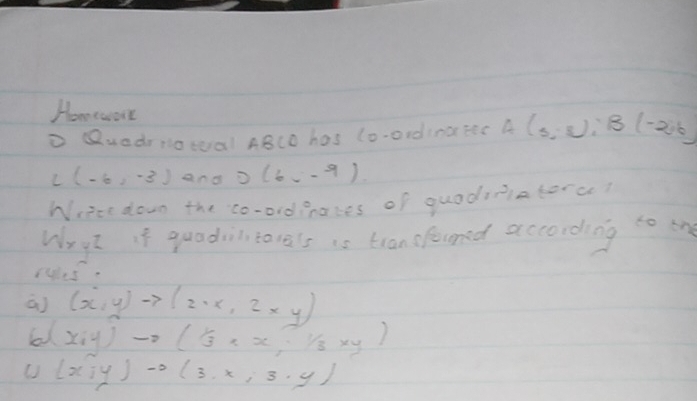 Homework
1) Quadrilateral ABCD has Co-ordinates A (3; 8); B (-2; 6)
C (-6, -3) and D (6, -9).
Write down the co-ordinates of quadrilateral
WxyZ if quadrilaterals is transformed according to the
rules:
a) (x; y) -> (2·x, 2 x y)
b) (x; y) -> (1/3 x x; 1/3 x y)
c) (x; y) -> (3·x; 3·y)